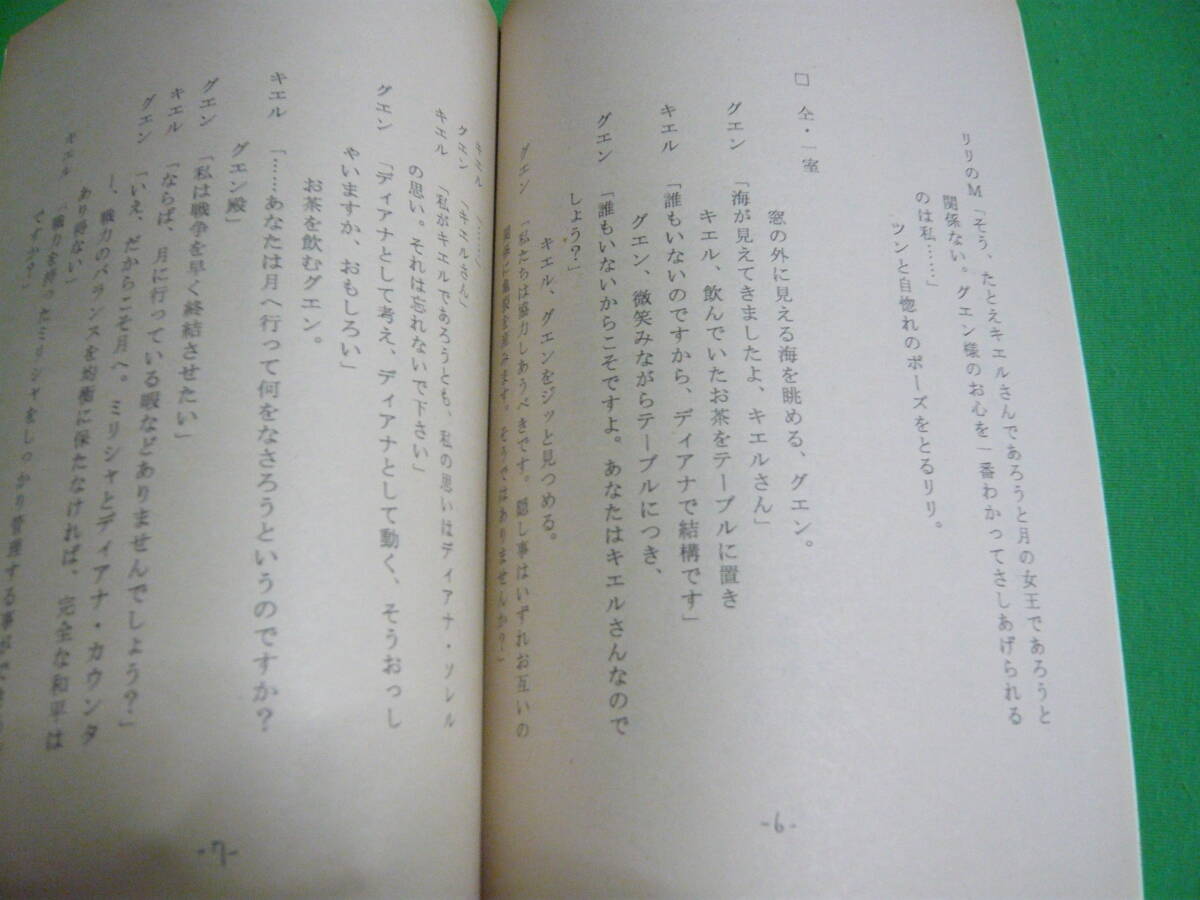 リリのM「そう、たとえキエルさんであろうと月の女王であろうと
関係ない。グエン様のお心を一番わかってさしあげられる
のは私……」
ツンと自惚れのポーズをとるリリ。
□ 仝・一室
窓の外に見える海を眺める、グエン。
グエン 「海が見えてきましたよ、キエルさん」
キエル、飲んでいたお茶をテーブルに置き
キエル 「誰もいないのですから、ディアナで結構です」
グエン、微笑みながらテーブルにつき、
グエン 「誰もいないからこそですよ。あなたはキエルさんなので
しょう？」
キエル、グエンをジッと見つめる。
グエン 「私たちは協力しあうべきです。隠し事はいずれお互いの
関係に亀裂を産みます。そうではありませんか？」
-6-
キエル 「……」
グエン 「キエルさん」
キエル 「私がキエルであろうとも、私の思いはディアナ・ソレル
の思い。それは忘れないで下さい」
グエン 「ディアナとして考え、ディアナとして動く、そうおっし
ゃいますか、おもしろい」
お茶を飲むグエン。
キエル 「……あなたは月へ行って何をなさろうというのですか？
グエン殿」
グエン 「私は戦争を早く終結させたい」
キエル 「ならば、月に行っている暇などありませんでしょう？」
グエン 「いえ、だからこそ月へ。ミリシャとディアナ・カウンタ
ー、戦力のバランスを均衡に保たなければ、完全な和平は
あり得ない」
キエル 「戦力を持ったミリシャをしっかり管理する事ができるの
ですか？」
-7-